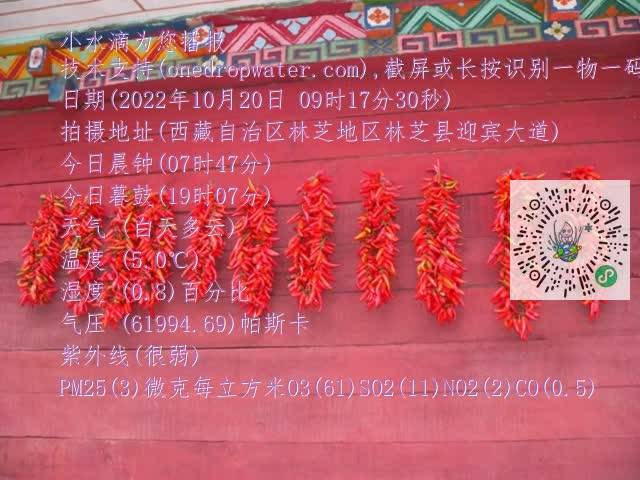 小水滴为您播报
技术支持(onedropwater.com),截屏或长按识别一物一码
日期(2022年10月20日 09时17分30秒)
拍摄地址(西藏自治区林芝地区林芝县迎宾大道)
今日晨钟(07时47分)
今日暮鼓(19时07分)
天气 (白天多云)
温度 (5.0℃)
湿度 (0.8)百分比
气压 (61994.69)帕斯卡
紫外线(很弱)
PM25(3)微克每立方米O3(61)SO2(11)NO2(2)CO(0.5)